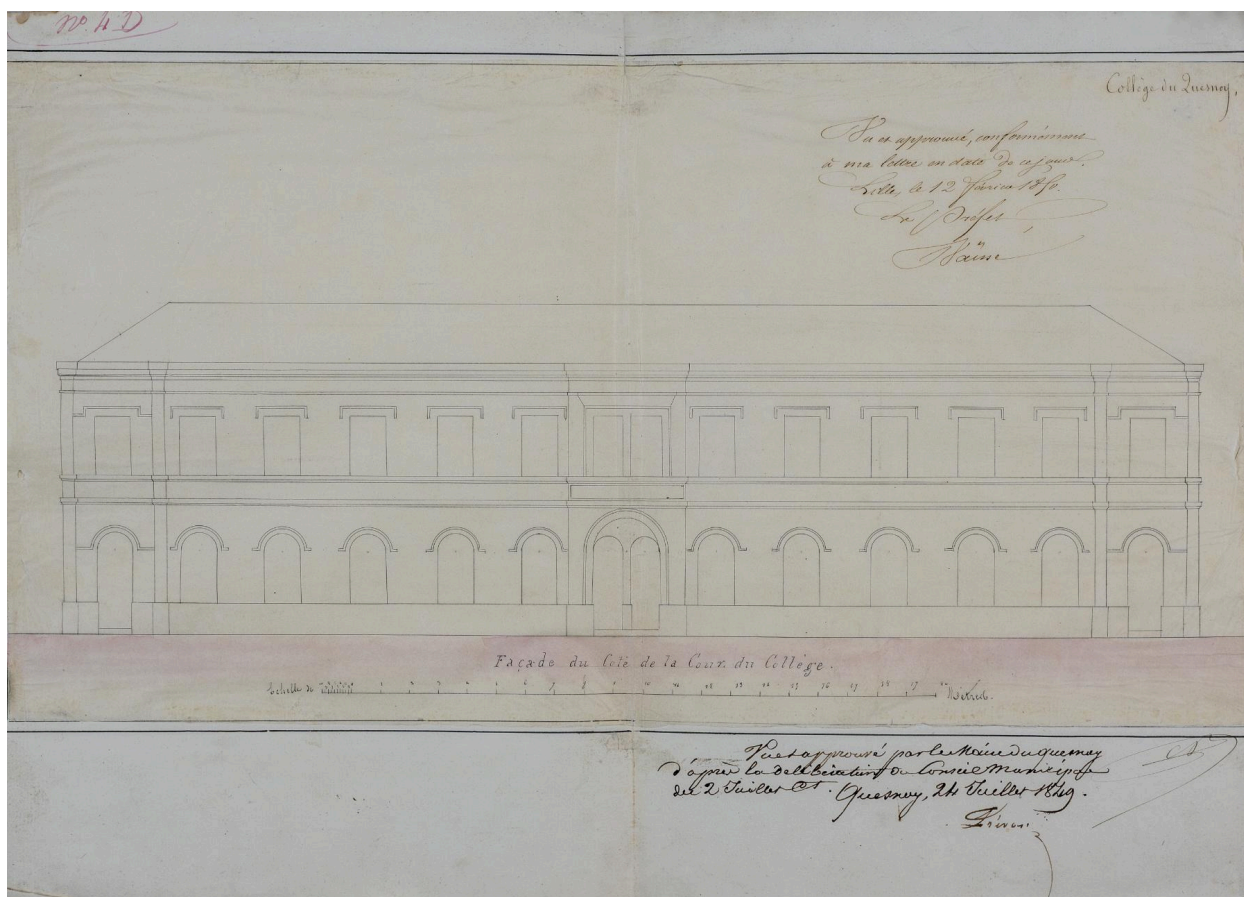 No. 4 D
Collège du Quesnoy,
Vu et approuvé, conformément
à ma lettre en date de ce jour.
Lille, le 12 février 1850.
Le Préfet
Façade du Coté de la Cour du Collège.
Echelle de
Mètres.
Vu et approuvé par le Maire du Quesnoy
d'après la Délibération du Conseil Municipal
du 2 Juillet Ct. Quesnoy, 24 Juillet 1849.